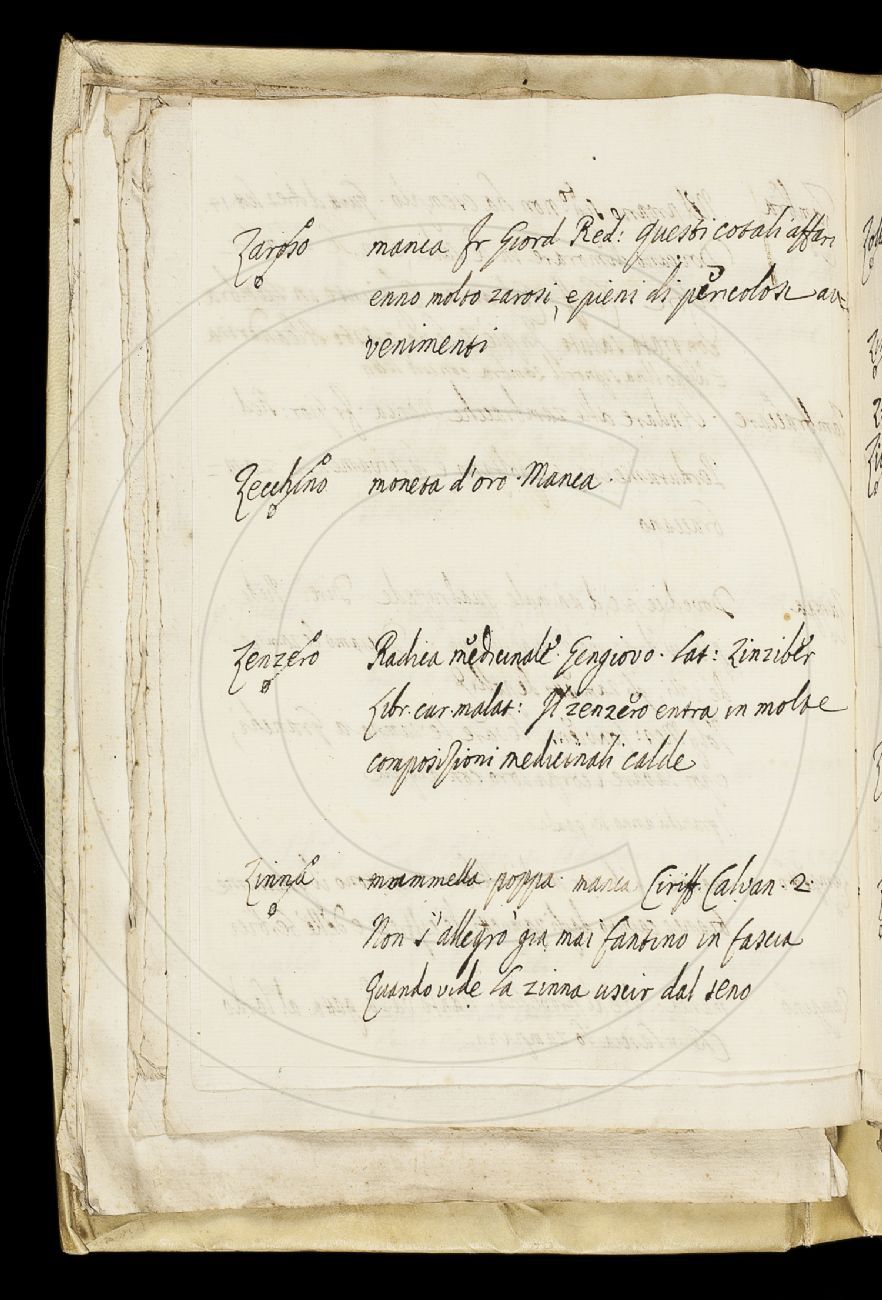 Zaroso manca fr Giord Red: questi cotali affari
enno molto zarosi, e pieni di pericolosi av=
venimenti
Zecchino moneta d'oro. Manca.
Zenzero Radica medicinale. Gengiovo. Lat: Zinziber
Libr. cur. malat: Il zenzero entra in molte
composizioni medicinali calde
Zinna mammella. poppa. manca Ciriff. Calvan. 2.
Non s'allegrò gia mai fantino in fascia
Quando vide la zinna uscir dal seno